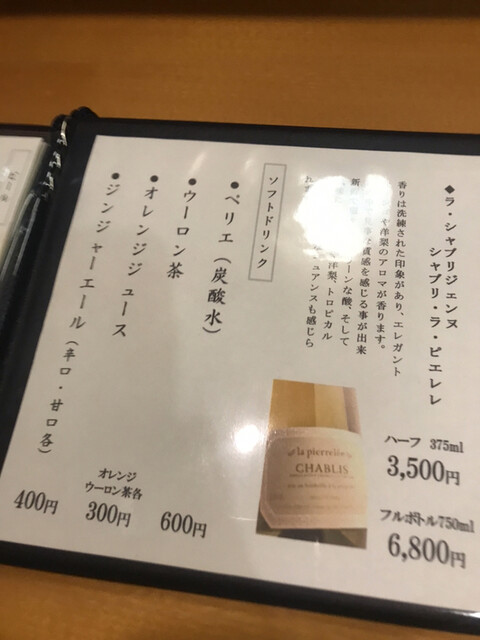 ◆ラ・シャブリジェンヌ
シャブリ・ラ・ピエレレ
香りは洗練された印象があり、エレガント
や洋梨のアロマが香ります。
質感を感じる事が出来
ーンな酸、そして
洋梨、トロピカル
ュアンスも感じら
ハーフ 375ml
3,500円
フルボトル750ml
6,800円
la pierrelée
CHABLIS
ソフトドリンク
•ペリエ(炭酸水)
600円
•ウーロン茶
•オレンジジュース
オレンジ
ウーロン茶各
300円
•ジンジャーエール(辛口・甘口各)
400円